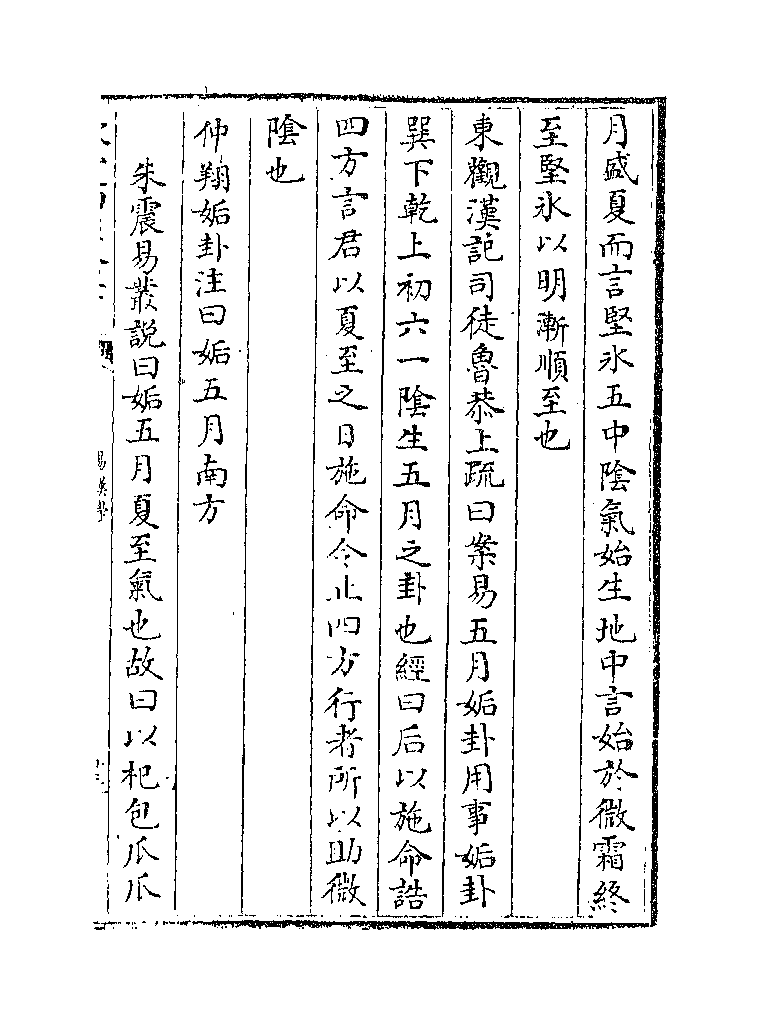 月盛夏而言堅氷五中陰氣始生地中言始於微霜終
至堅氷以明漸順至也
東觀漢記司徒魯恭上疏曰案易五月姤卦用事姤卦
巽下乾上初六一陰生五月之卦也經曰后以施命誥
四方言君以夏至之日施命令止四方行者所以助微
陰也
仲翔姤卦注曰姤五月南方
朱震易叢說曰姤五月夏至氣也故曰以杞包瓜瓜
易漢學